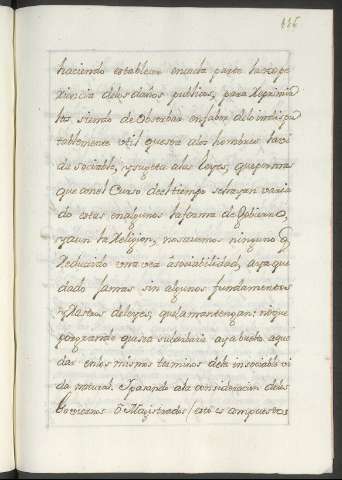 116
haciendo establecer en cada parte la expe
riencia delos daños publicos, para reprimir
los siendo de observar en favor delo indispu
tablemente vtil que sea alos hombres la vi
da sociable, y sugeta alas Leyes, que por mas
que con el Curso deel tiempo se hayan varia
do estas en algunos la forma de Gobierno,
y aun la Religion, no savemos ninguno q̃
Reducido vna vez à sociabilidad, aya que
dado Jamas sin algunos fundamentos
y Rastros de leyes, que la mantengan: ni que
por grande que sea su barbarie aya buelto a que
dar en los mismos terminos dela insociable vi
da natural. Y parando ala consideracion delos
Goviernos ô Magistrados (esto es compuestos